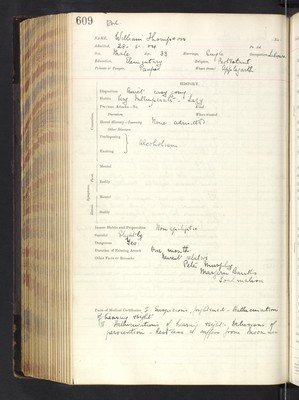 609
NAME, William Thompson
Admitted, 24. 5.
Sex, Male Age, 33 Marriage, Single Occupation, Labourer
Education, Elementary Religion, Protestant
Private or Pauper, Pauper Where from: Applegarth
HISTORY.
Disposition Quiet easy going
Habits Very Intemperate - Lazy
Previous Attacks—No. First
Duration Where treated
Moral History—Insanity None admitted
Other Diseases
Predisposing
Exciting
Alcoholism
Mental
Bodily
Mental
Bodily
Insane Habits and Propensities Non epileptic
Suicidal Slightly
Dangerous Yes
Duration of Existing Attack One month
Other Facts or Remarks Nearest relative
Peter Murphy
Facts of Medical Certificates, I. Suspicious Hallucinations
of hearing & sight
II. Hallucinations of hearing & sight - Delusions of
persecution